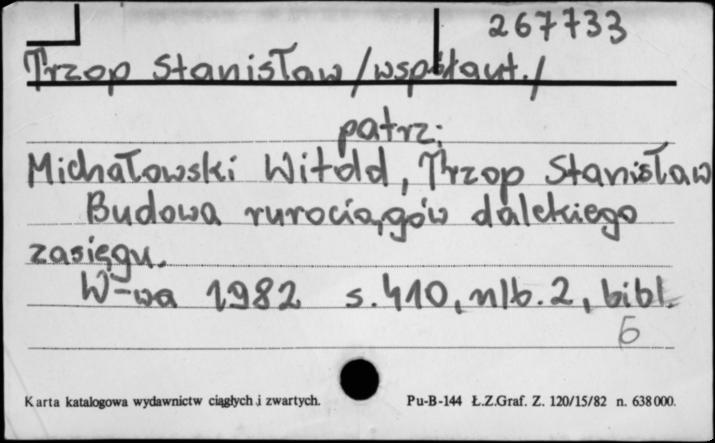 267733
Trzop Stanisław /współaut./
patrz:
Michałowski Witold, Trzop Stanisław
Budowa rurociągów dalekiego
zasięgu.
W-wa 1982 s. 410, nlb. 2, bibl.
6
Karta katalogowa wydawnictw ciągłych i zwartych. Pu-B-144 Ł.Z.Graf. Z. 120/15/82 n. 638000.